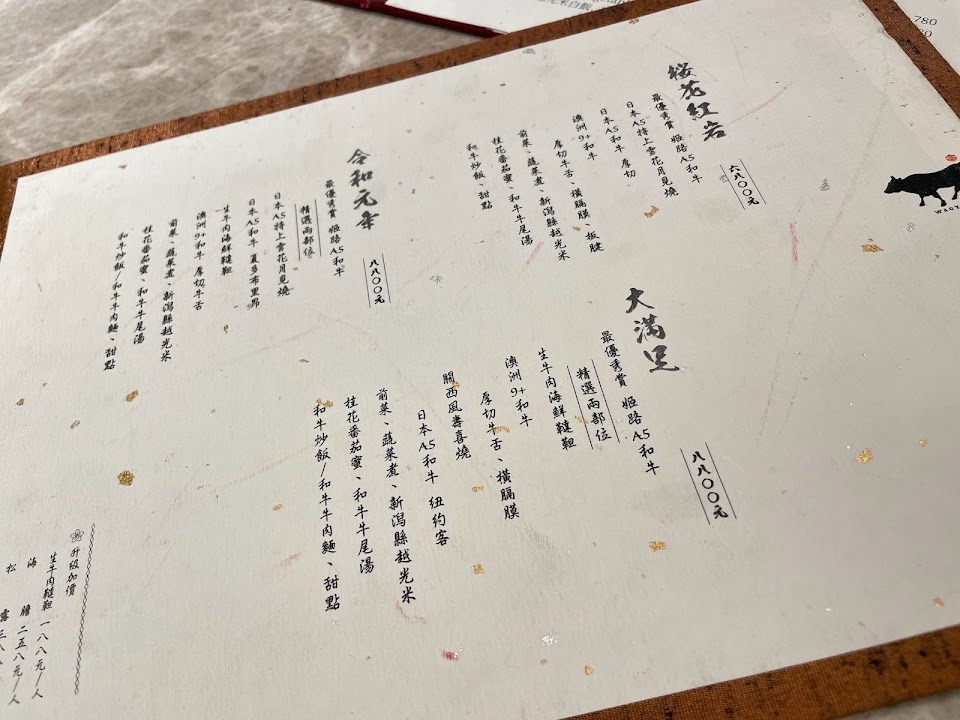 桜花紅岩
六八〇〇元
最優秀賞 姬路A5和牛
日本A5特上雪花月見燒
日本A5和牛 厚切
澳洲9+和牛
厚切牛舌、橫膈膜 板腱
前菜、蔬菜煮、新潟縣越光米
桂花番茄蜜、和牛牛尾湯
和牛炒飯、甜點
令和元年
八八〇〇元
最優秀賞 姬路A5和牛
精選兩部位
日本A5特上雪花月見燒
日本A5和牛 夏多布里昂
生牛肉海鮮韃靼
澳洲9+和牛 厚切牛舌
前菜、蔬菜煮、新潟縣越光米
桂花番茄蜜、和牛牛尾湯
和牛炒飯/和牛牛肉麵、甜點
大滿足
八八〇〇元
最優秀賞 姬路A5和牛
精選兩部位
生牛肉海鮮韃靼
澳洲9+和牛
厚切牛舌、橫膈膜
關西風壽喜燒
日本A5和牛 紐約客
前菜、蔬菜煮、新潟縣越光米
桂花番茄蜜、和牛牛尾湯
和牛炒飯/和牛牛肉麵、甜點
升級加價
生牛肉韃靼 一八八元/人
海膽 二五八元/人
松露
780
白飯